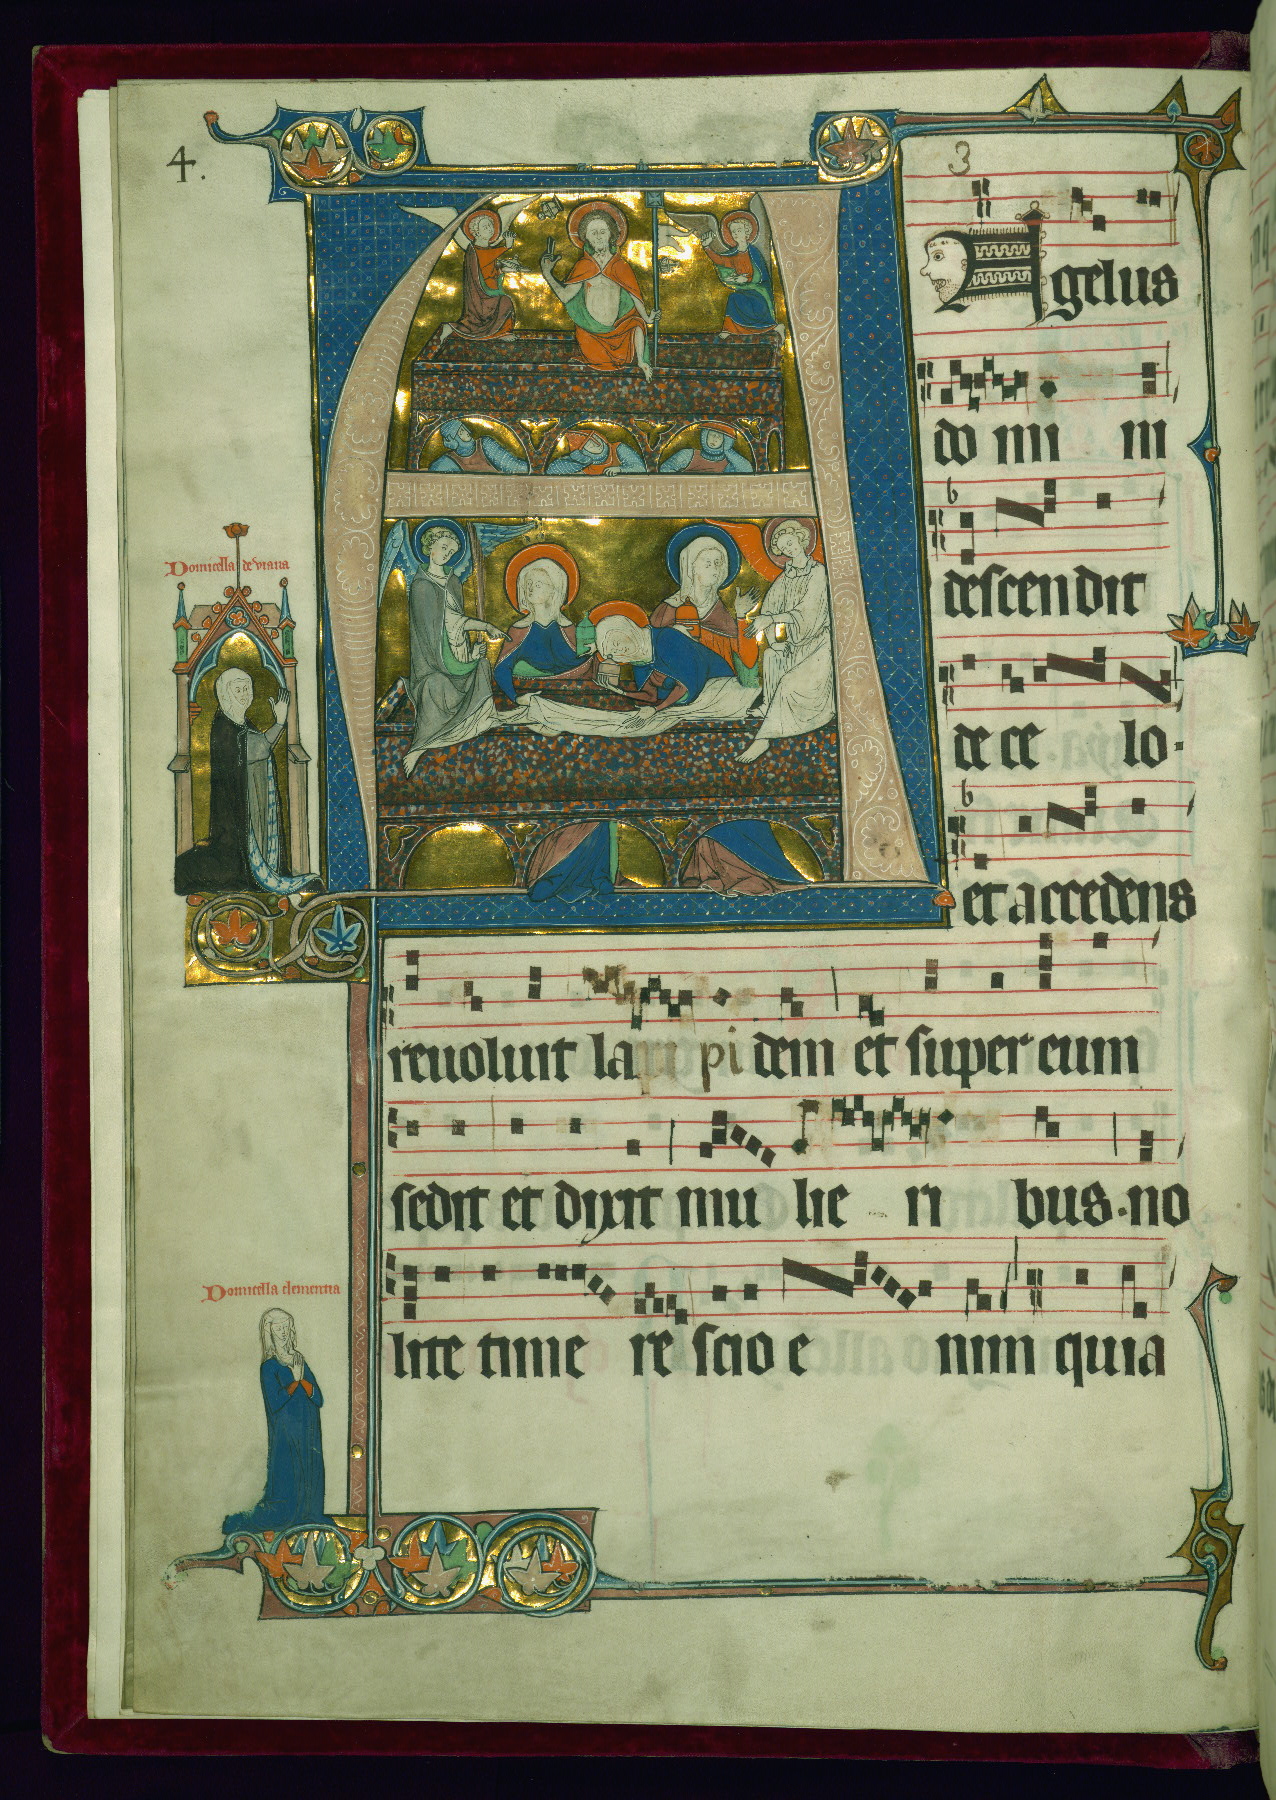 4.
3
Angelus
do mi ni
descendit
de ce lo·
et accedens
Domicella de viana
revoluit la pi dem et super eum
sedit et dixit mu lie ri bus·no
Domicella clementia
lite time re scio e nim quia